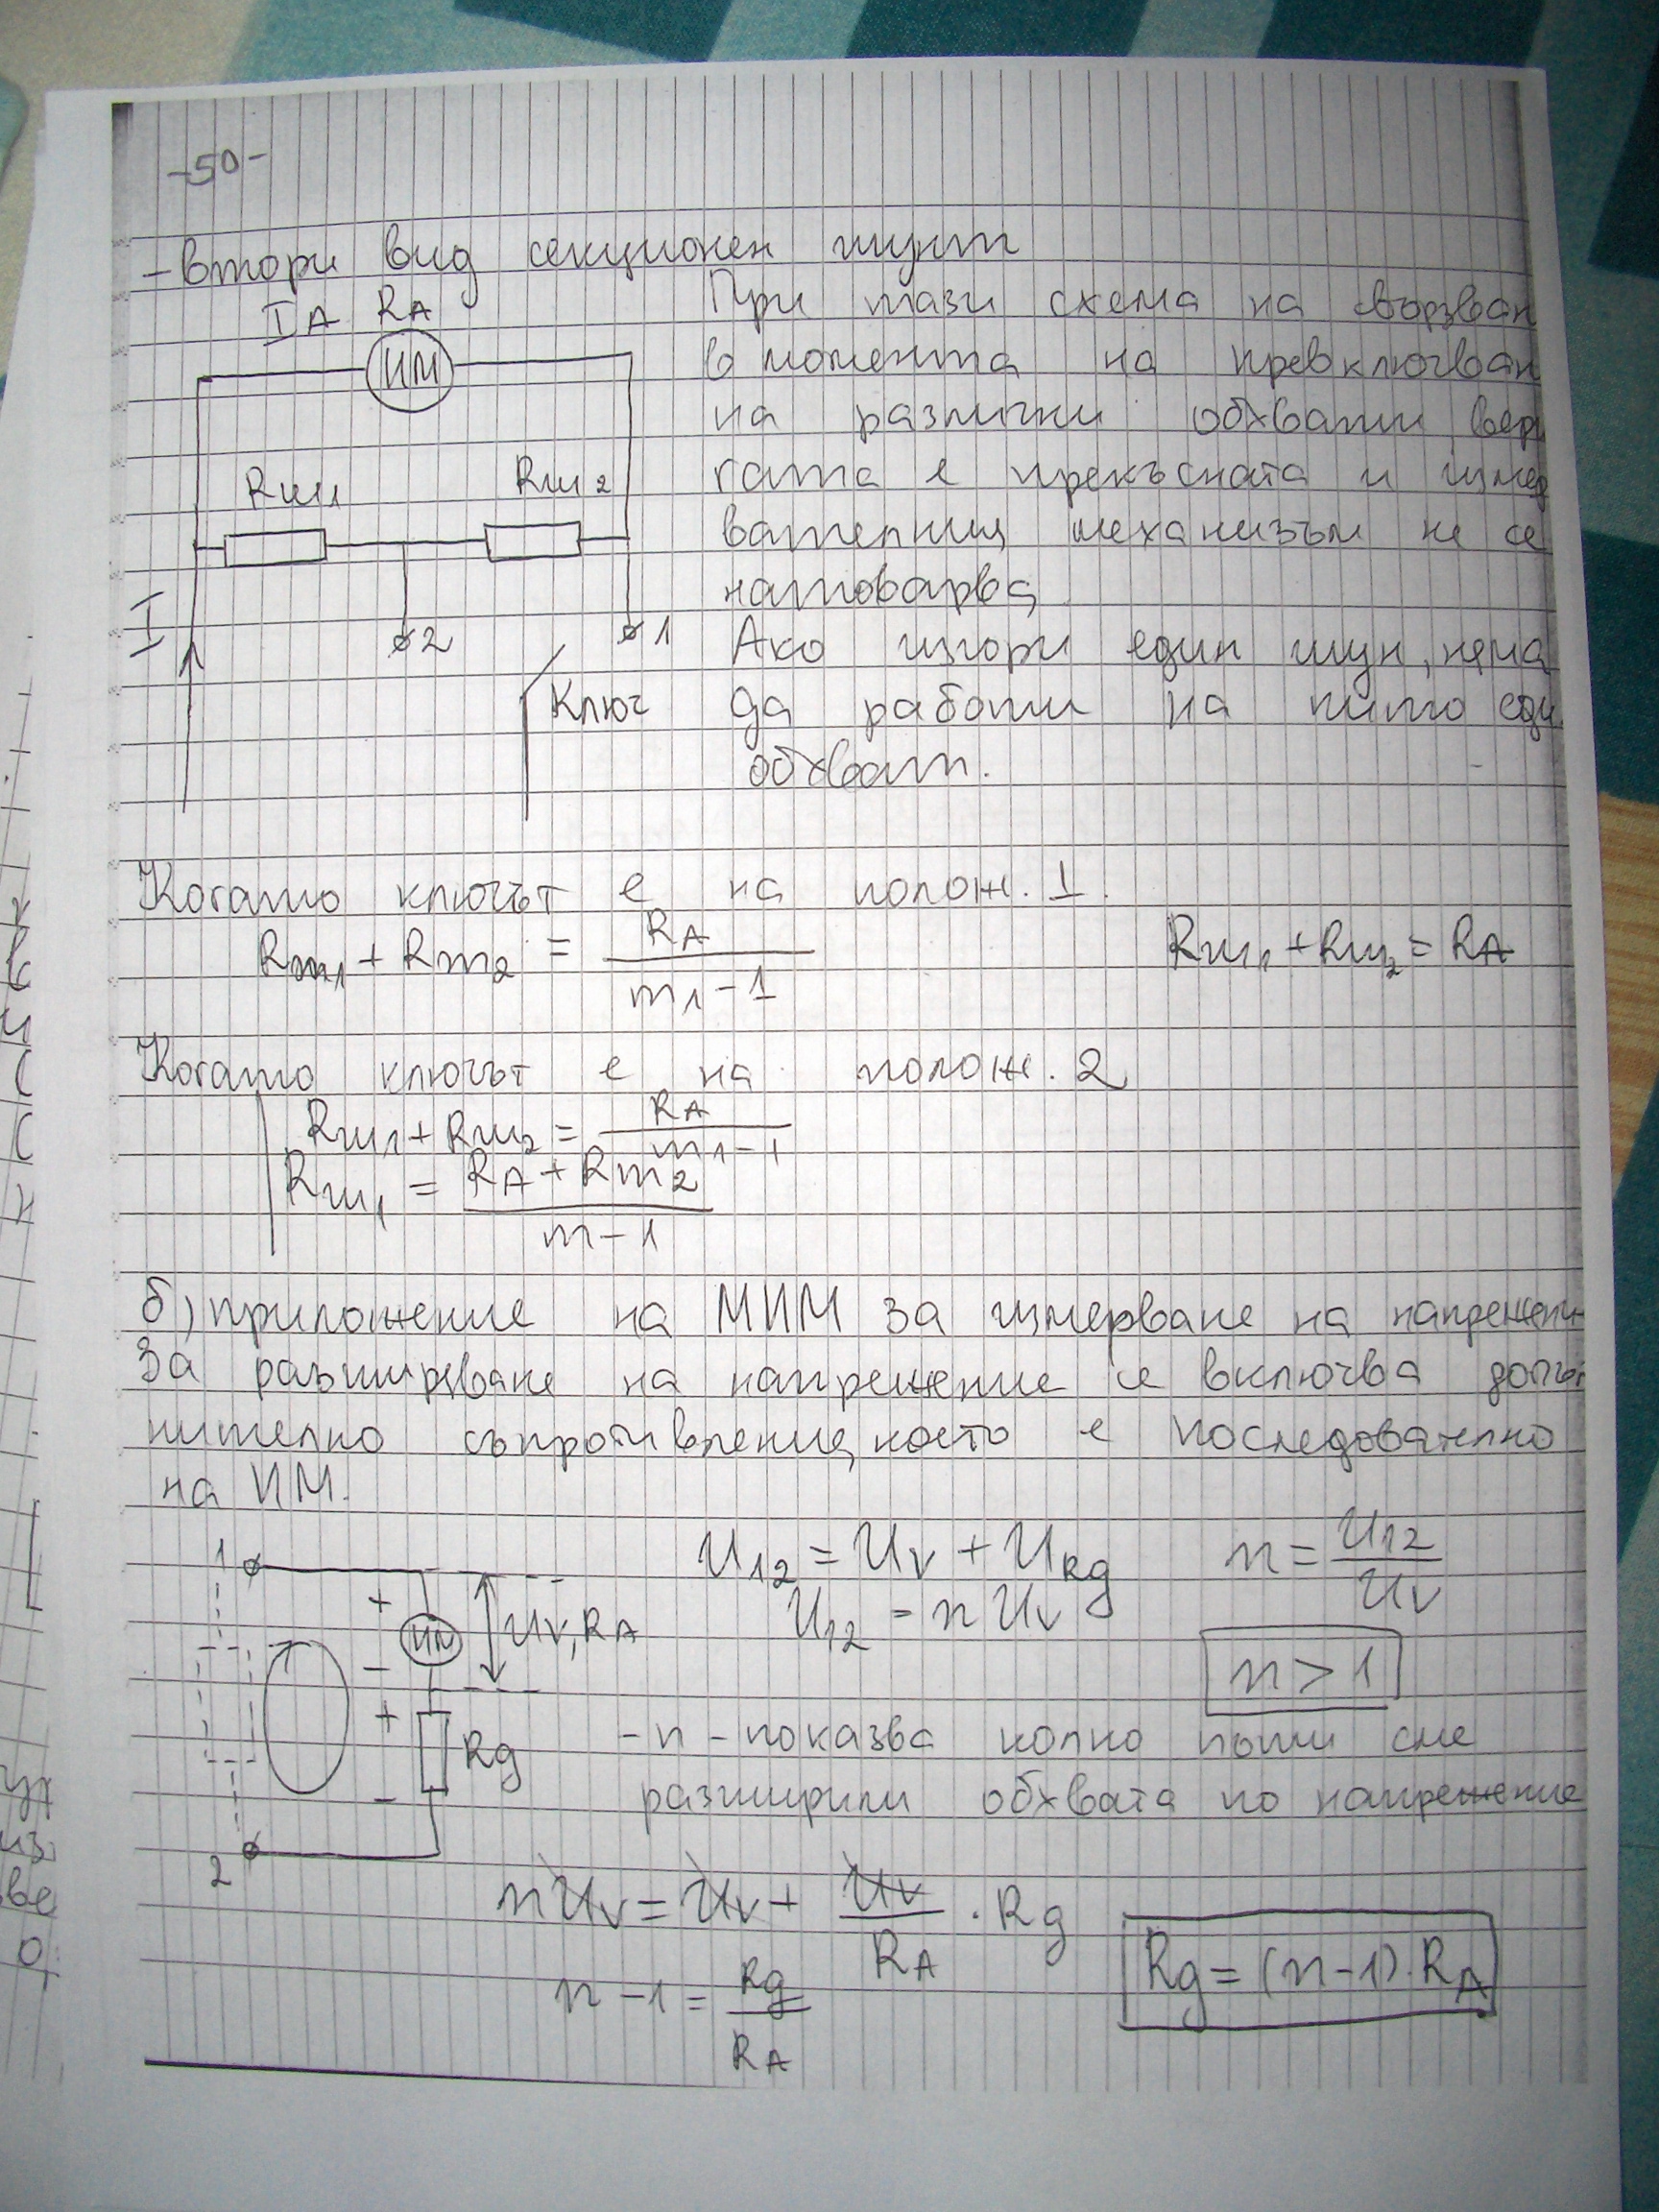 -50-
- втори вид секционен шунт
IA RA
ИМ
Rш1
Rш2
I
2
1
Ключ
При тази схема на свързван
в момента на превключван
на различни обхвати вери
гата е прекъсната и измер
вателния механизъм не се
натоварва
Ако изгори един шун, няма
да работи на нито еди
обхват.
Когато ключът е на полож. 1.
Rш1 + Rш2 = RA / m1 - 1
Rш1 + Rш2 = RA
Когато ключът е на полож. 2
Rш1 + Rш2 = RA / m1 - 1
Rш1 = RA + Rш2 / m - 1
б) приложение на МИМ за измерване на напрежени
За разширяване на напрежение се включва допъл
нително съпротивление, което е последователно
на ИМ.
1
+
ИМ
-
UV, RA
+
Rg
-
2
U12 = UV + URg
n = U12 / UV
U12 = n UV
n > 1
- n - показва колко пъти сме
разширили обхвата по напрежение
nUV = UV + UV / RA . Rg
n - 1 = Rg / RA
Rg = (n-1). RA